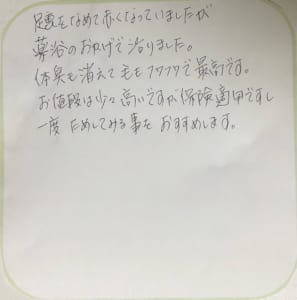 足裏をなめて赤くなっていましたが
薬浴のおかげで治りました。
体臭も消えて毛もフワフワで最高です。
お値段は少々高いですが保険適用ですし
一度ためしてみる事をおすすめします。